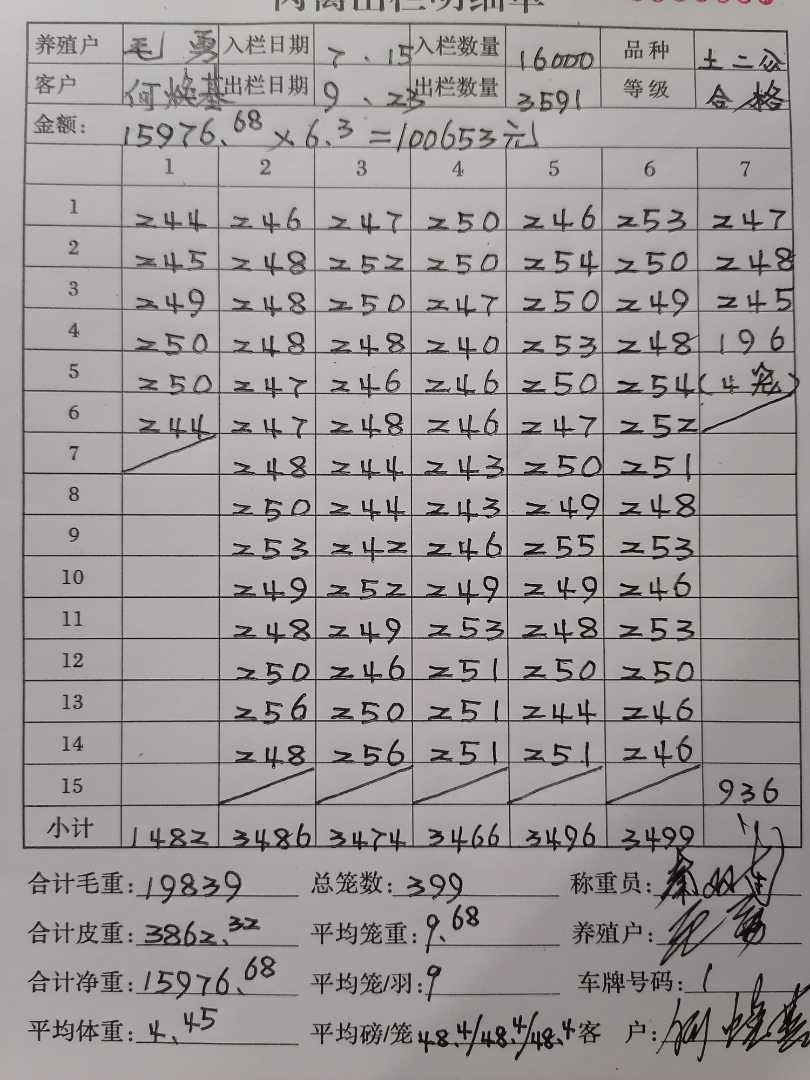 肉禽出栏明细单
养殖户 毛勇 入栏日期 7.15 入栏数量 16000 品种 土二公
客户 何焕基 出栏日期 9.23 出栏数量 3591 等级 合格
金额: 15976.68×6.3=100653元
1 2 3 4 5 6 7
1 244 246 247 250 246 253 247
2 245 248 252 250 254 250 248
3 249 248 250 247 250 249 245
4 250 248 248 240 253 248 196
5 250 247 246 246 250 254 (4笼)
6 244 247 248 246 247 252
7 248 244 243 250 251
8 250 244 243 249 248
9 253 242 246 255 253
10 249 252 249 249 246
11 248 249 253 248 253
12 250 246 251 250 250
13 256 250 251 244 246
14 248 256 251 251 246
15 936
小计 1482 3486 3474 3466 3496 3499
合计毛重: 19839 总笼数: 399 称重员:
合计皮重: 3862.32 平均笼重: 9.68 养殖户: 毛勇
合计净重: 15976.68 平均笼/羽: 9 车牌号码: 1
平均体重: 4.45 平均磅/笼 48.4/48.4/48.4 客户: